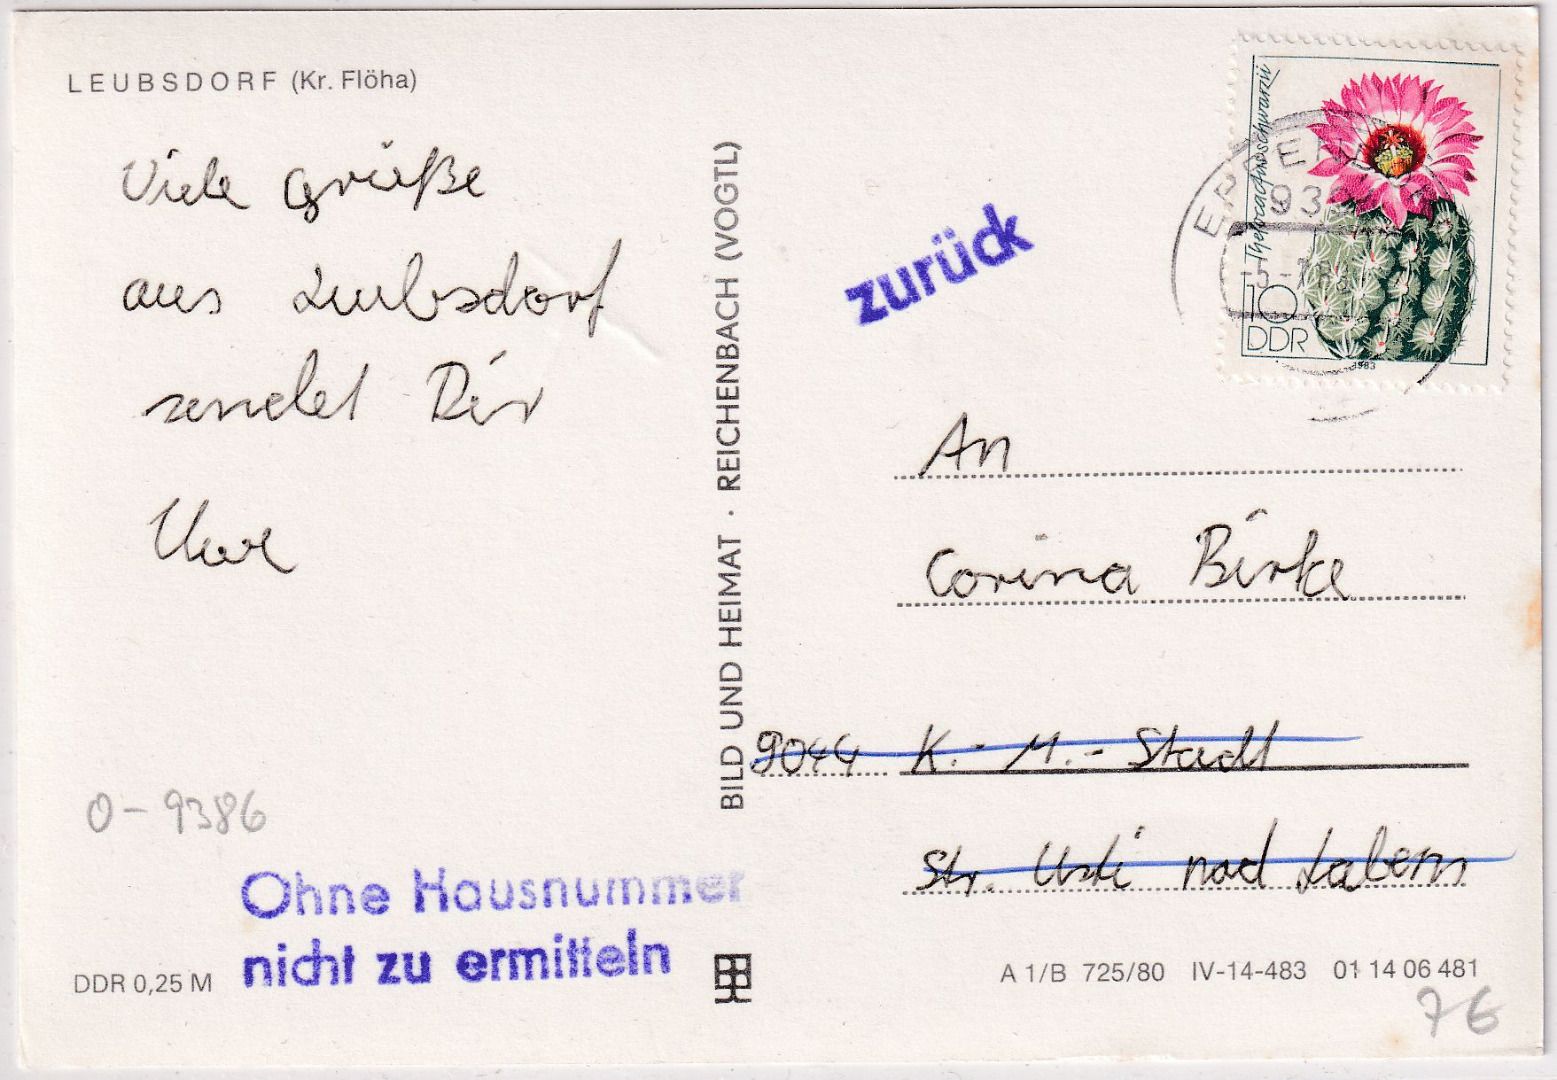 LEUBSDORF (Kr. Flöha)
Viele Grüße
aus Leubsdorf
sendet Dir
Uwe
O-9386
Ohne Hausnummer
nicht zu ermitteln
DDR 0,25 M
BILD UND HEIMAT · REICHENBACH (VOGTL)
zurück
Thelocactus schwarzii
10
DDR
1983
An
Corina Birke
9044 K.-M.-Stadt
Str. Usti nad Labem
A 1/B 725/80 IV-14-483 01 14 06 481
76